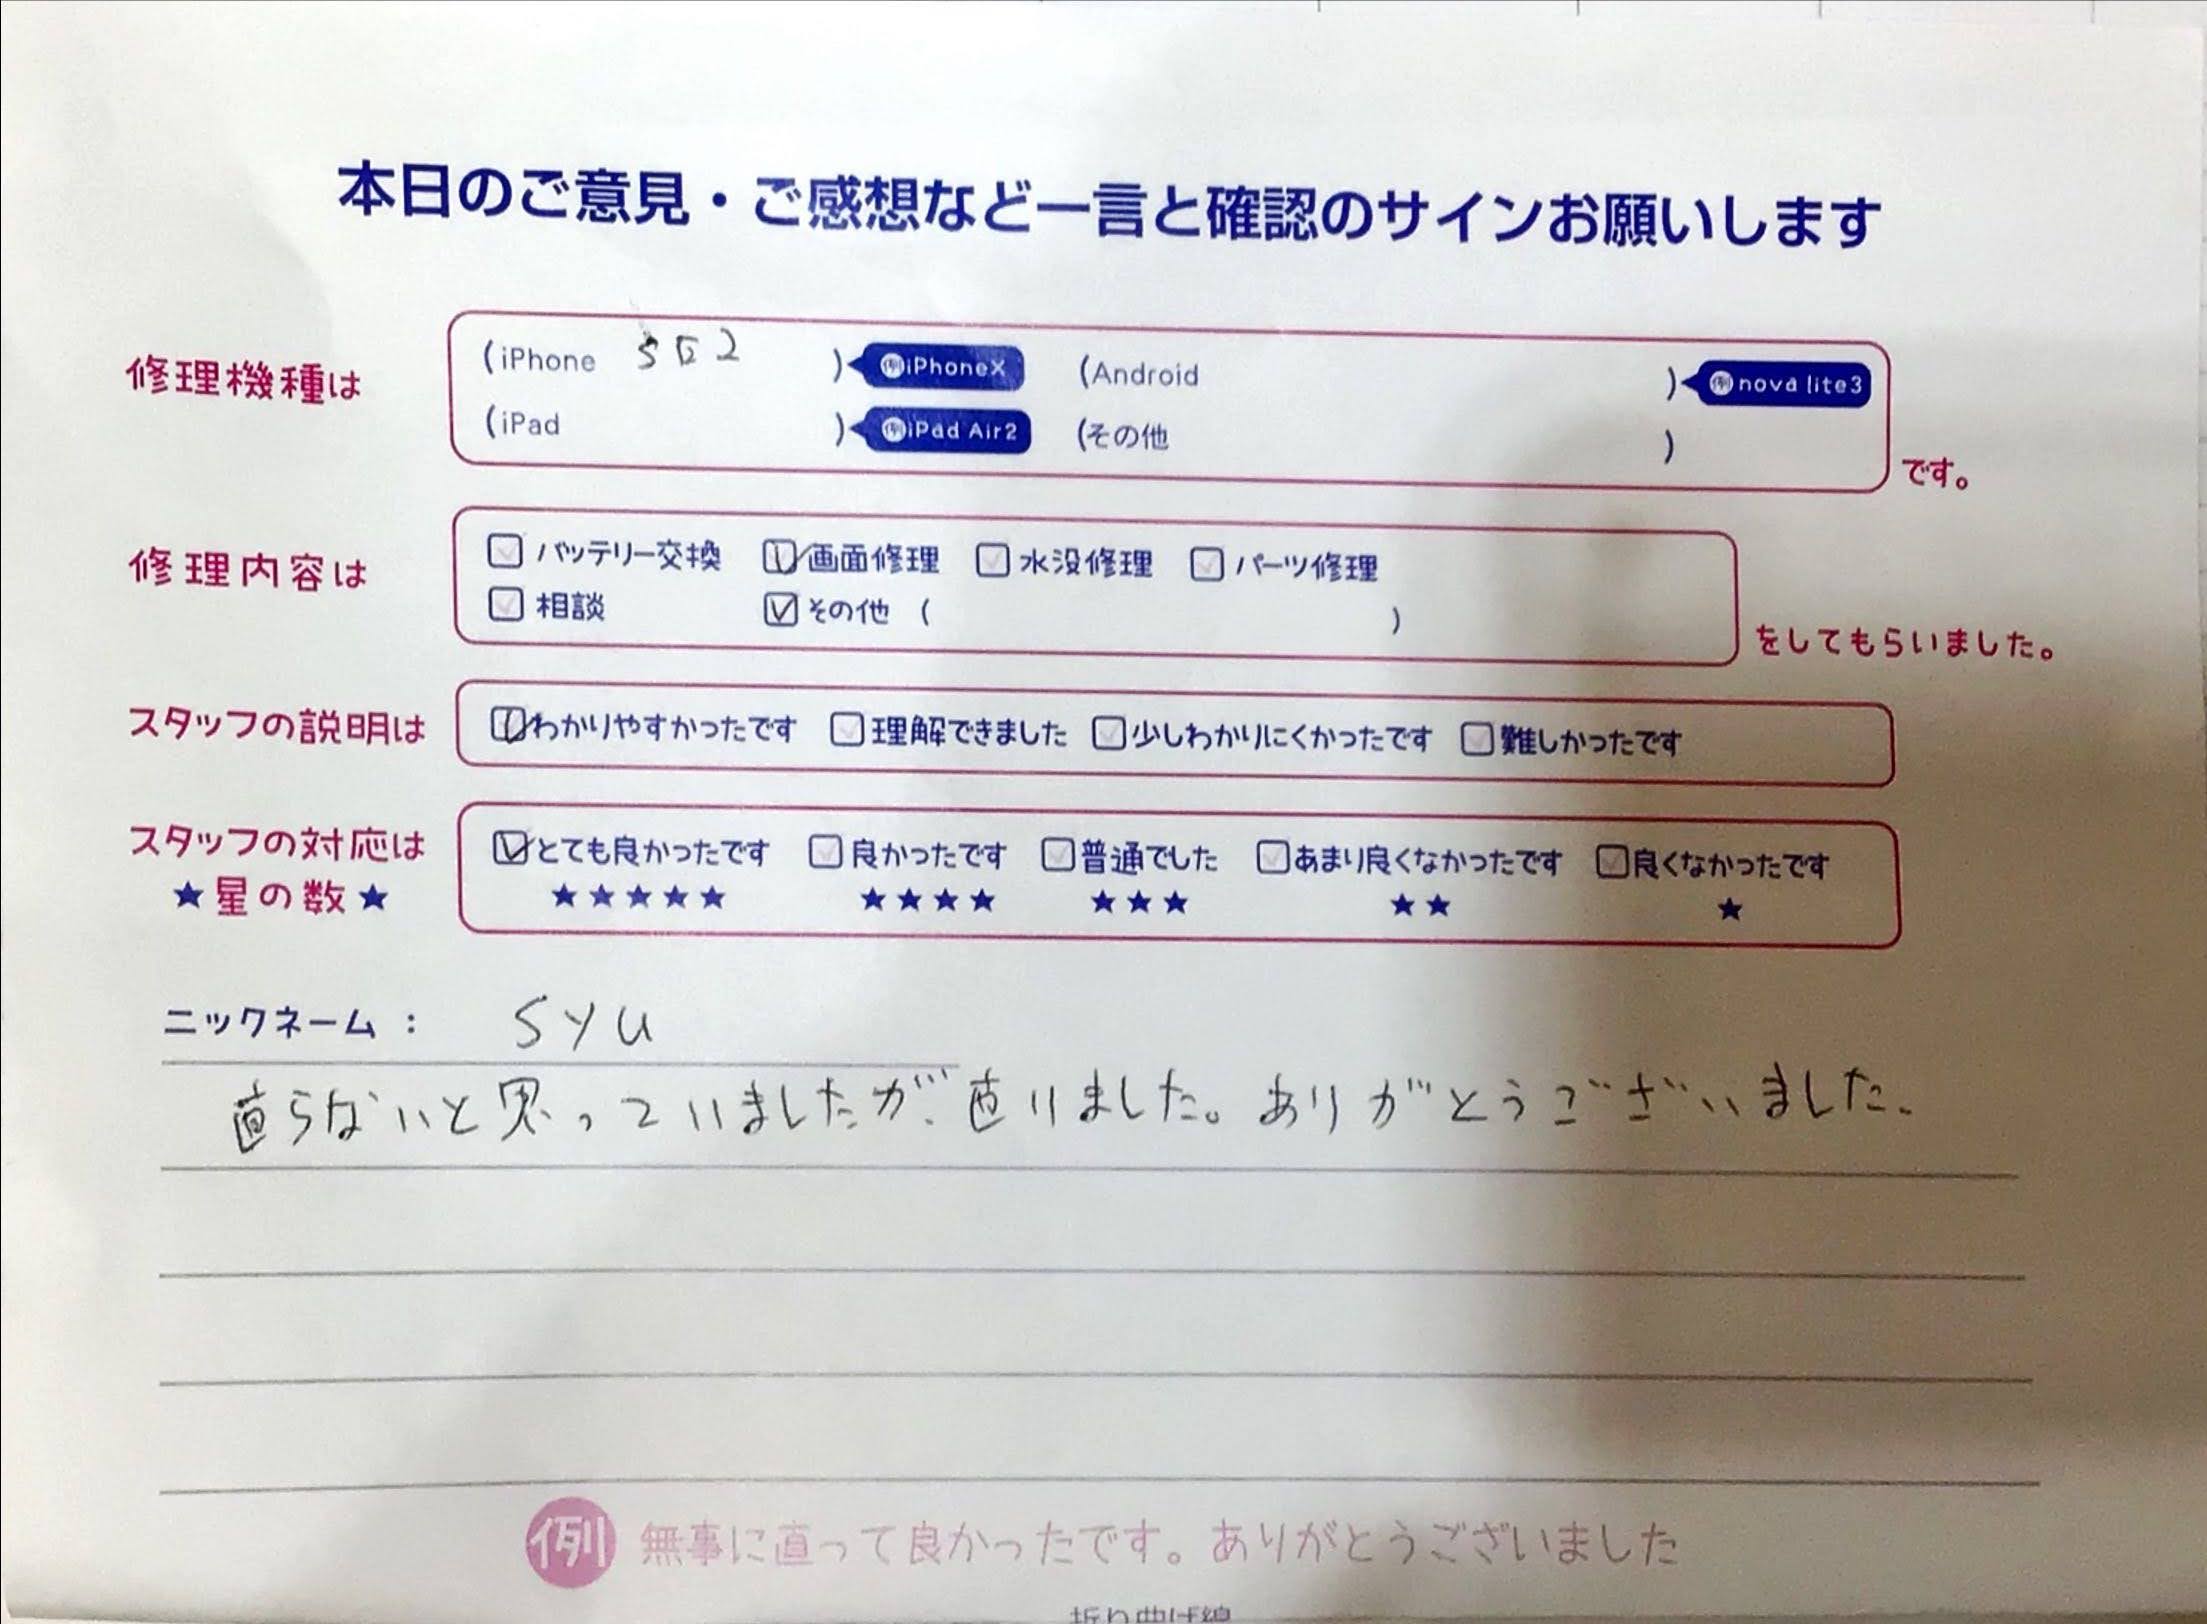 本日のご意見・ご感想など一言と確認のサインお願いします
修理機種は (iPhone SE2 ) 例iPhoneX (Android ) 例nova lite3
(iPad ) 例iPad Air2 (その他 ) です。
修理内容は バッテリー交換 画面修理 水没修理 パーツ修理
相談 その他 ( ) をしてもらいました。
スタッフの説明は わかりやすかったです 理解できました 少しわかりにくかったです 難しかったです
スタッフの対応は とても良かったです 良かったです 普通でした あまり良くなかったです 良くなかったです
★星の数★ ★★★★★ ★★★★ ★★★ ★★ ★
ニックネーム： syu
直らないと思っていましたが、直りました。ありがとうございました。
例 無事に直って良かったです。ありがとうございました
折り曲げ線